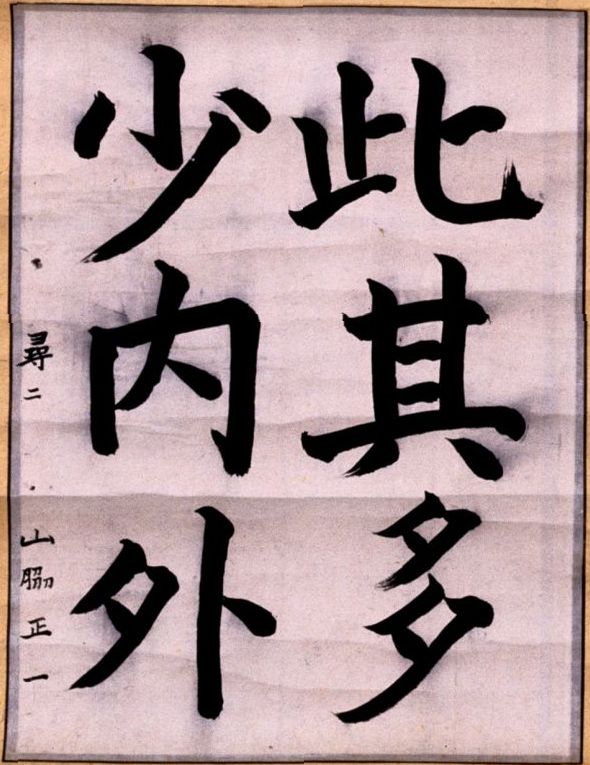 此其多
少内外
尋二 山脇正一